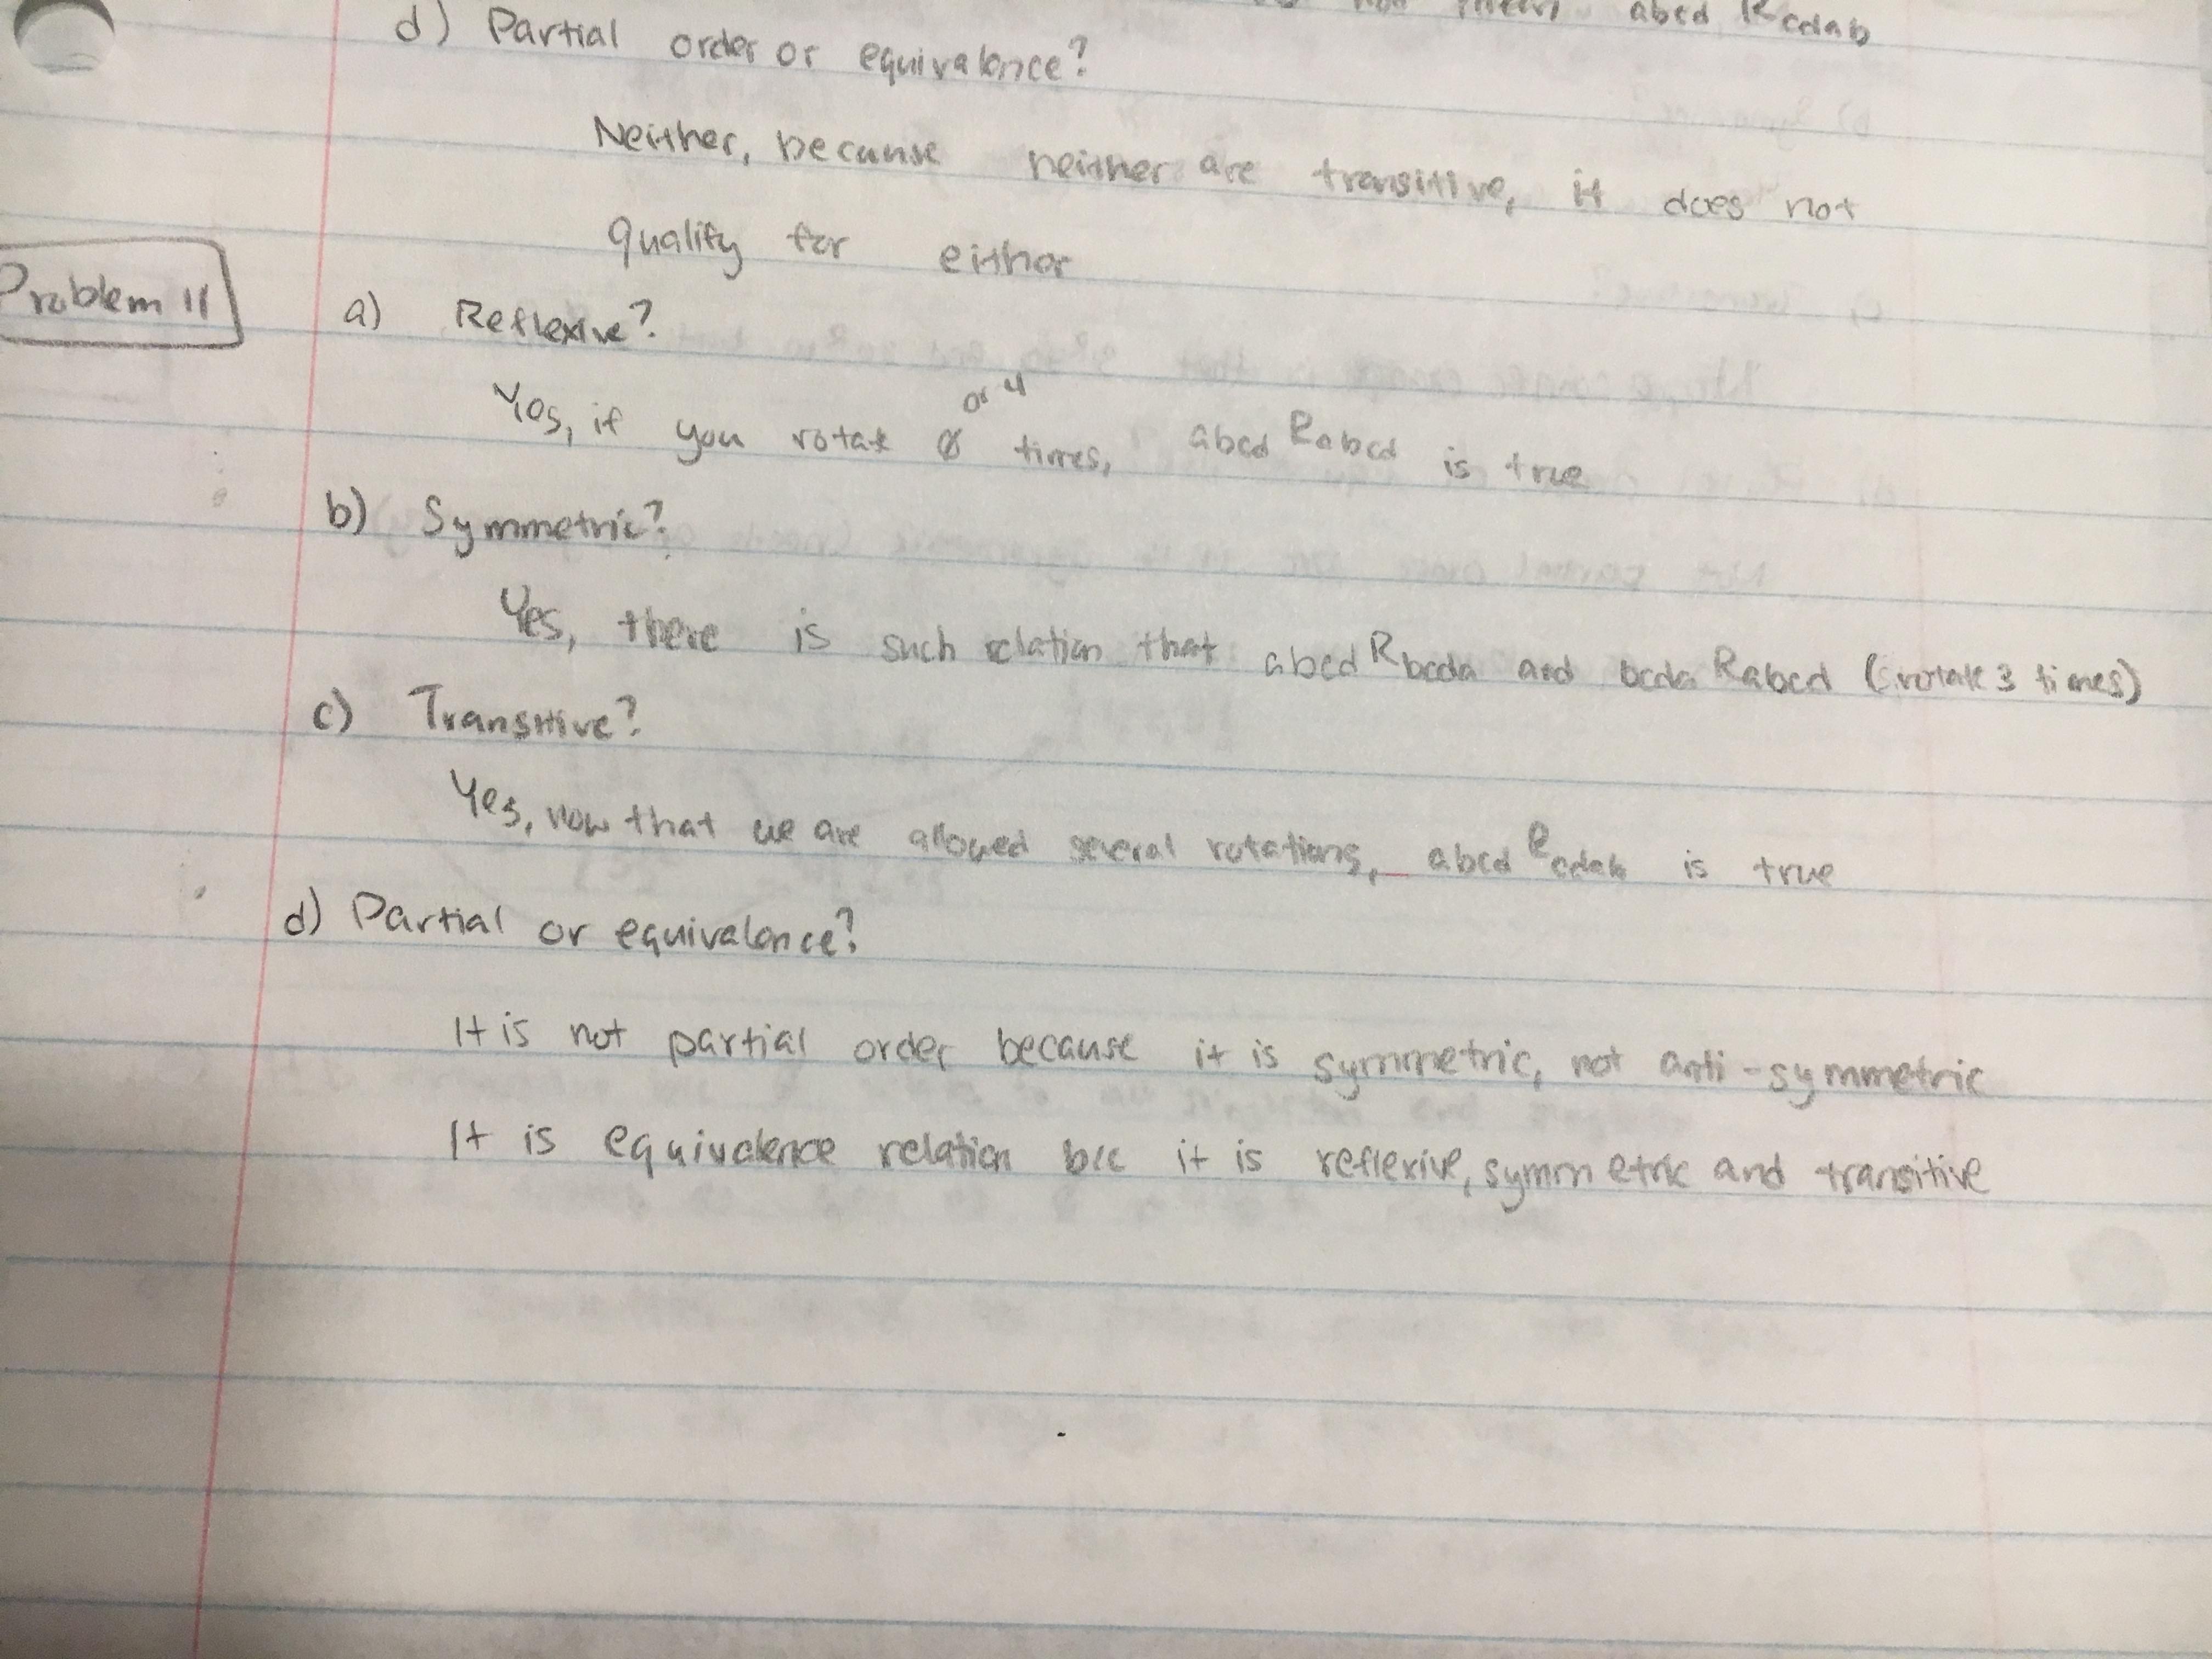 abcd R cdab
d) Partial order or equivalence?
Neither, because neither are transitive, it does not
qualify for either
Problem 11
a) Reflexive?
Yes, if you rotate 0 or 4 times, abcd R abcd is true
b) Symmetric?
Yes, there is such relation that abcd R bcda and bcda R abcd (rotate 3 times)
c) Transitive?
Yes, now that we are allowed several rotations, abcd R cdab is true
d) Partial or equivalence?
It is not partial order because it is symmetric, not anti-symmetric
It is equivalence relation b/c it is reflexive, symmetric and transitive